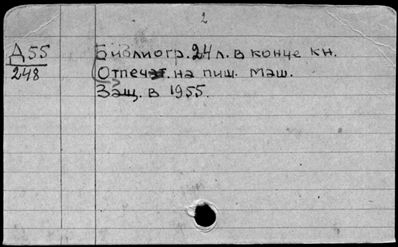 2
Д55
248
Библиогр. 24 л. в конце кн.
Отпечат. на пиш. маш.
Защ. в 1955.